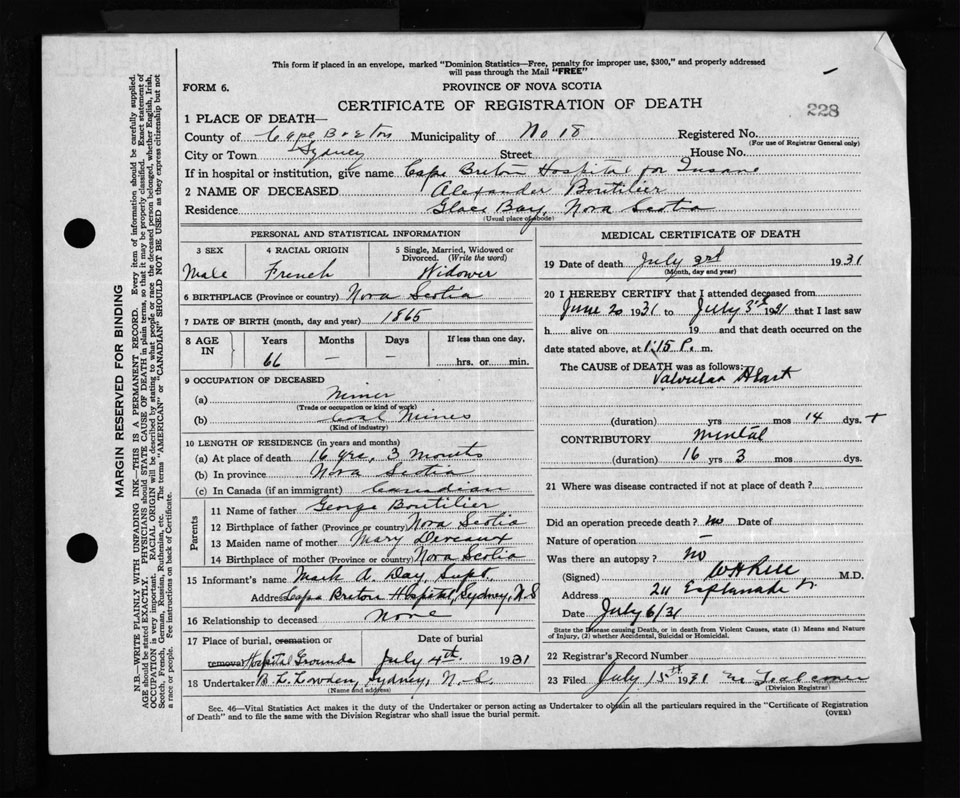 This form if placed in an envelope, marked "Dominion Statistics—Free, penalty for improper use, $300," and properly addressed
will pass through the Mail "FREE"
FORM 6.
PROVINCE OF NOVA SCOTIA
228
CERTIFICATE OF REGISTRATION OF DEATH
1 PLACE OF DEATH—
County of Cape Breton Municipality of No 18 Registered No.
(For use of Registrar General only)
City or Town Sydney Street House No.
If in hospital or institution, give name Cape Breton Hospital for Insane
2 NAME OF DECEASED Alexander Boutilier
Residence Glace Bay, Nova Scotia
(Usual place of abode)
PERSONAL AND STATISTICAL INFORMATION
3 SEX 4 RACIAL ORIGIN 5 Single, Married, Widowed or
Divorced. (Write the word)
Male French Widower
6 BIRTHPLACE (Province or country) Nova Scotia
7 DATE OF BIRTH (month, day and year) 1865
8 AGE IN Years Months Days If less than one day,
66 — — hrs. or min.
9 OCCUPATION OF DECEASED
(a) Miner
(Trade or occupation or kind of work)
(b) Coal Mines
(Kind of industry)
10 LENGTH OF RESIDENCE (in years and months)
(a) At place of death 16 yrs, 3 months
(b) In province Nova Scotia
(c) In Canada (if an immigrant) Canadian
Parents
11 Name of father George Boutilier
12 Birthplace of father (Province or country) Nova Scotia
13 Maiden name of mother Mary Dereaux
14 Birthplace of mother (Province or country) Nova Scotia
15 Informant's name Mark A. Day, Supt.
Address Cape Breton Hospital, Sydney, N.S
16 Relationship to deceased None
17 Place of burial, cremation or Date of burial
removal Hospital Grounds July 4th 1931
18 Undertaker B. L. Lowden, Sydney, N.S.
(Name and address)
MEDICAL CERTIFICATE OF DEATH
19 Date of death July 3rd 1931
(Month, day and year)
20 I HEREBY CERTIFY that I attended deceased from
June 20 1931 to July 3rd 1931 that I last saw
h alive on 19 and that death occurred on the
date stated above, at 1.15 P. m.
The CAUSE of DEATH was as follows:
Valvular Heart
(duration) yrs mos 14 dys. +
CONTRIBUTORY Mental
(duration) 16 yrs 3 mos dys.
21 Where was disease contracted if not at place of death?
Did an operation precede death? no Date of
Nature of operation —
Was there an autopsy? no
(Signed) M.D.
Address 211 Esplanade
Date July 6/31
State the Disease causing Death, or in death from Violent Causes, state (1) Means and
Nature of Injury, (2) whether Accidental, Suicidal or Homicidal.
22 Registrar's Record Number
23 Filed July 15th 1931
(Division Registrar)
Sec. 46—Vital Statistics Act makes it the duty of the Undertaker or person acting as Undertaker to obtain all the particulars required in the "Certificate of Registration
of Death" and to file the same with the Division Registrar who shall issue the burial permit.
(OVER)
MARGIN RESERVED FOR BINDING
N.B.—WRITE PLAINLY WITH UNFADING INK—THIS IS A PERMANENT RECORD. Every item of information should be carefully supplied.
AGE should be stated EXACTLY. PHYSICIANS should STATE CAUSE OF DEATH in plain terms, so that it may be properly classified. Exact statement of
OCCUPATION is very important. RACIAL ORIGIN will be described by stating to what people or race the deceased person belonged, whether English, Irish,
Scotch, French, German, Russian, Ruthenian, etc. The terms "AMERICAN" or "CANADIAN" SHOULD NOT BE USED as they express citizenship but not
a race or people. Fee instructions on back of Certificate.